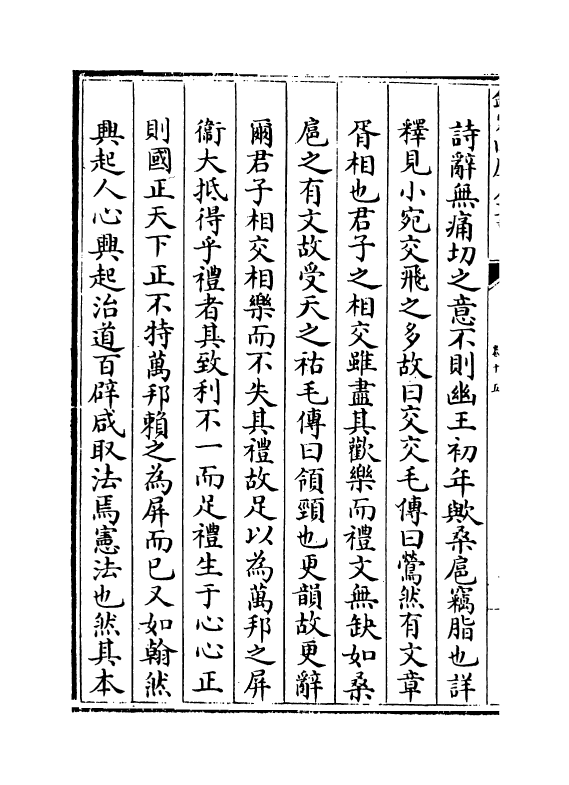 詩辭無痛切之意不則幽王初年歟桑扈竊脂也詳
釋見小宛交飛之多故曰交交毛傳曰鶯然有文章
胥相也君子之相交雖盡其歡樂而禮文無缺如桑
扈之有文故受天之祜毛傳曰領頸也更韻故更辭
爾君子相交相樂而不失其禮故足以為萬邦之屏
衞大抵得乎禮者其致利不一而足禮生于心心正
則國正天下正不特萬邦賴之為屏而已又如翰然
興起人心興起治道百辟咸取法焉憲法也然其本